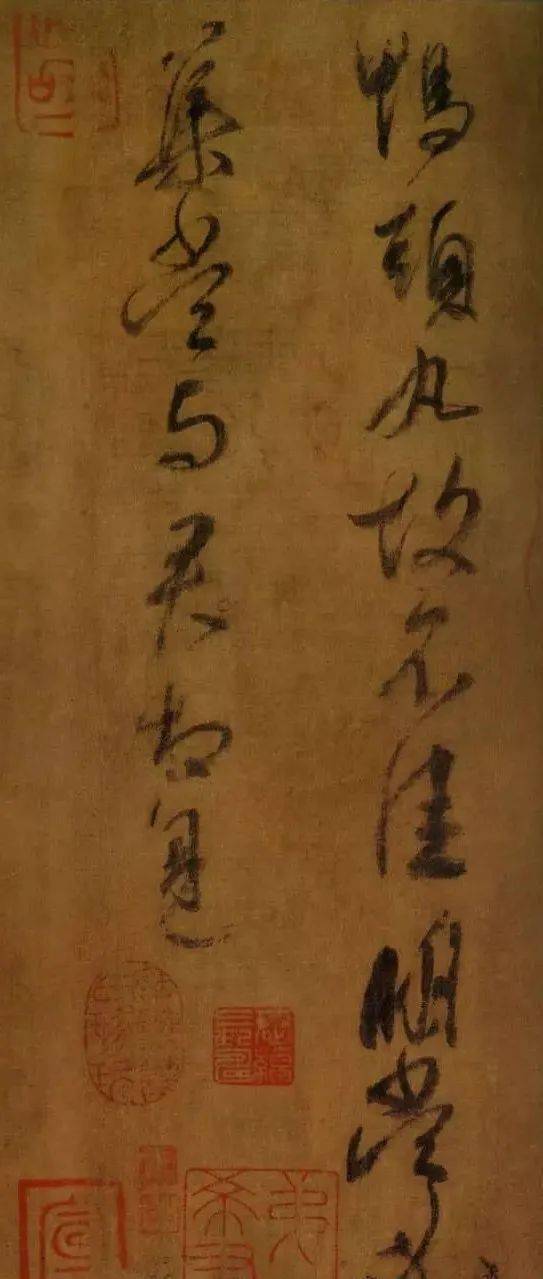 鴨頭丸故不佳明當必
集當与君相見